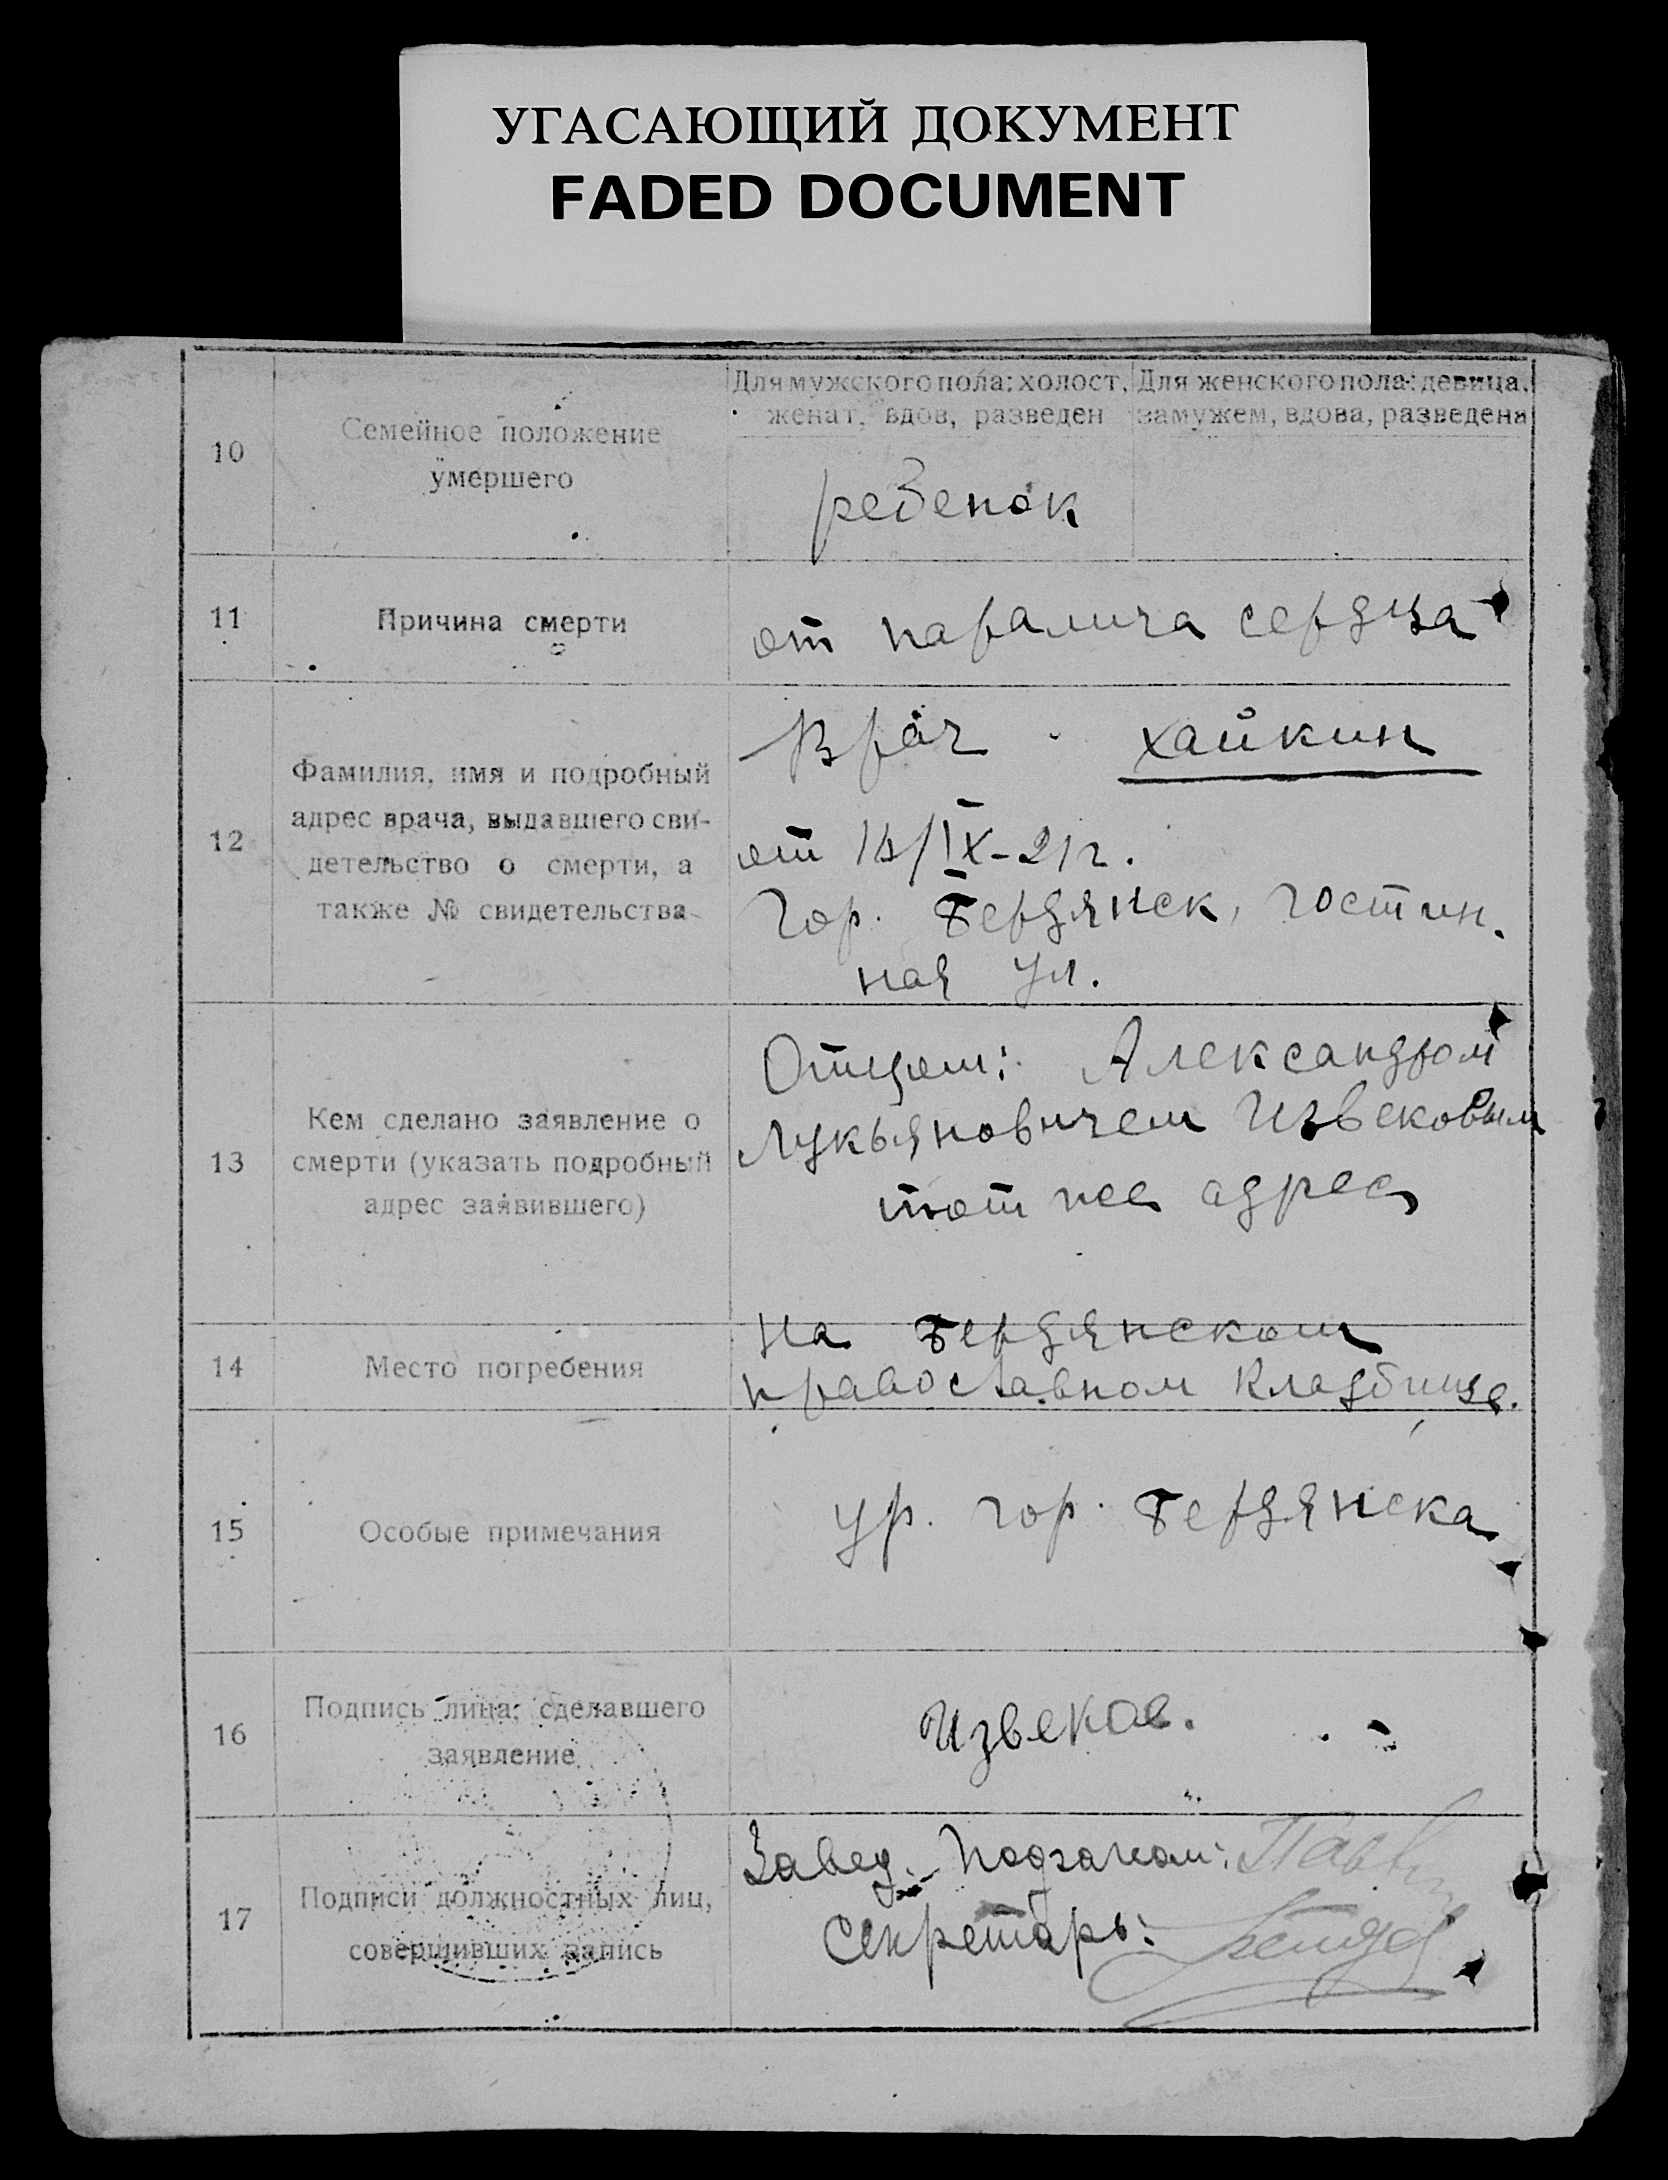 УГАСАЮЩИЙ ДОКУМЕНТ
FADED DOCUMENT
10
Семейное положение
умершего
Для мужского пола: холост,
женат, вдов, разведен
Для женского пола: девица,
замужем, вдова, разведена
ребенок
11
Причина смерти
от паралича сердца
12
Фамилия, имя и подробный
адрес врача, выдавшего сви-
детельство о смерти, а
также № свидетельства
Врач Хайкин
от /IX-21г.
Гор. Бердянск, Гостин.
ная ул.
13
Кем сделано заявление о
смерти (указать подробный
адрес заявившего)
Отцем: Александром
Лукьяновичем Извековым
тот же адрес
14
Место погребения
На Бердянском
православном кладбище.
15
Особые примечания
ур. гор. Бердянска
16
Подпись лица, сделавшего
заявление
Извеков.
17
Подписи должностных лиц,
совершивших запись
Завед.
Секретарь: